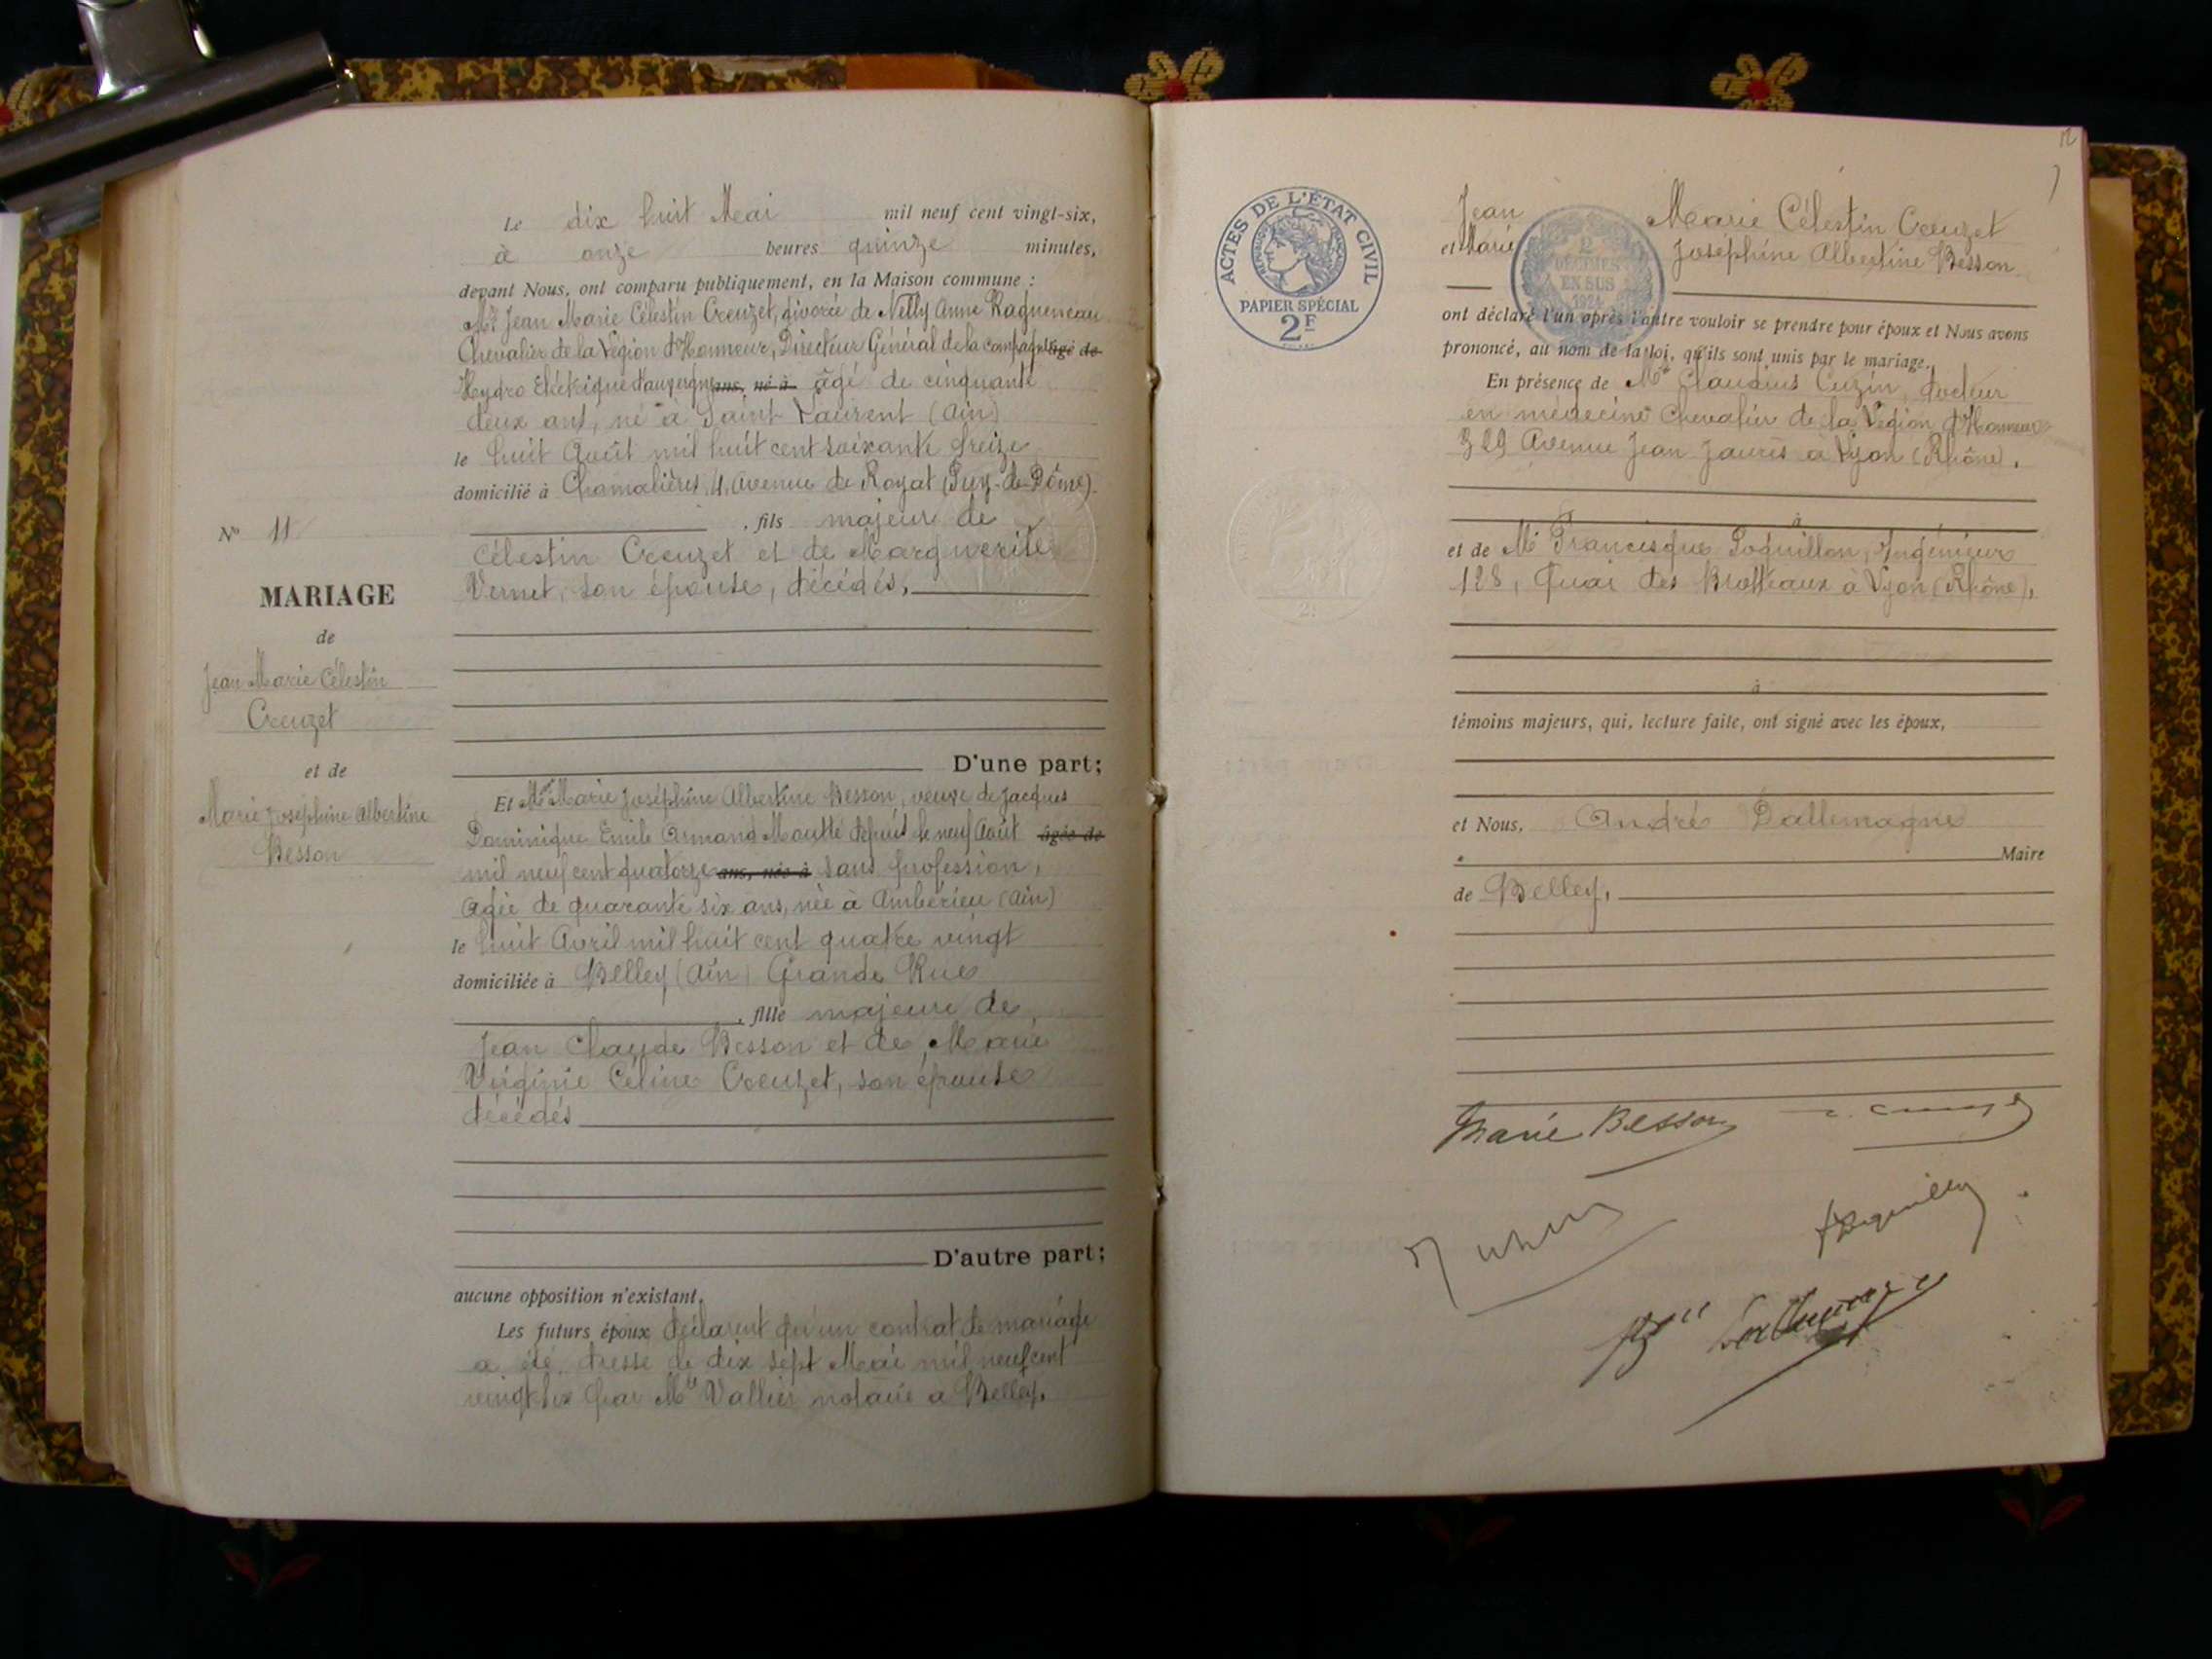 Le dix huit Mai mil neuf cent vingt-six,
à onze heures quinze minutes,
devant Nous, ont comparu publiquement, en la Maison commune :
Mr Jean Marie Célestin Creuzet, divorcé de Nelly Anne Ragueneau
Chevalier de la Légion d'Honneur, Directeur Général de la Compagnie âgé de
Hydro Electrique d'auvergne ans, né à âgé de cinquante
deux ans, né à Saint Laurent (Ain)
le huit Août mil huit cent soixante treize
domicilié à Chamalières, 4, Avenue de Royat (Puy-de-Dôme)
, fils majeur de
Célestin Creuzet et de Marguerite
Vernet, son épouse, décédés,
No 11
MARIAGE
de
Jean Marie Célestin
Creuzet
et de
Marie Joséphine Albertine
Besson
D'une part;
Et Mme Marie Joséphine Albertine Besson, veuve de Jacques
Dominique Emile Armand Moutte depuis le neuf Août âgée de
mil neuf cent quatorze ans, née à sans profession,
Agée de quarante six ans, née à Ambérieu (Ain)
le huit Avril mil huit cent quatre vingt
domiciliée à Belley (Ain) Grande Rue
, fille majeure de
Jean Claude Besson et de Marie
Virginie Céline Creuzet, son épouse
décédés
D'autre part;
aucune opposition n'existant.
Les futurs époux déclarent qu'un contrat de mariage
a été dressé le dix sept Mai mil neuf cent
vingt six par Me Vallier notaire à Belley.
12
ACTES DE L'ÉTAT CIVIL
RÉPUBLIQUE FRANÇAISE
PAPIER SPÉCIAL
2F
2 DÉCIMES
EN SUS
1924
Jean Marie Célestin Creuzet
et Marie Joséphine Albertine Besson
ont déclaré l'un après l'autre vouloir se prendre pour époux et Nous avons
prononcé, au nom de la loi, qu'ils sont unis par le mariage.
En présence de Mr Claudius Cuzin, docteur
en médecine Chevalier de la Légion d'Honneur
329 Avenue Jean Jaurès à Lyon (Rhône).
à
et de Mr Francisque Poquillon, Ingénieur
128, Quai des Brotteaux à Lyon (Rhône),
à
témoins majeurs, qui, lecture faite, ont signé avec les époux,
et Nous, André Dallemagne
Maire
de Belley,
Marie Besson